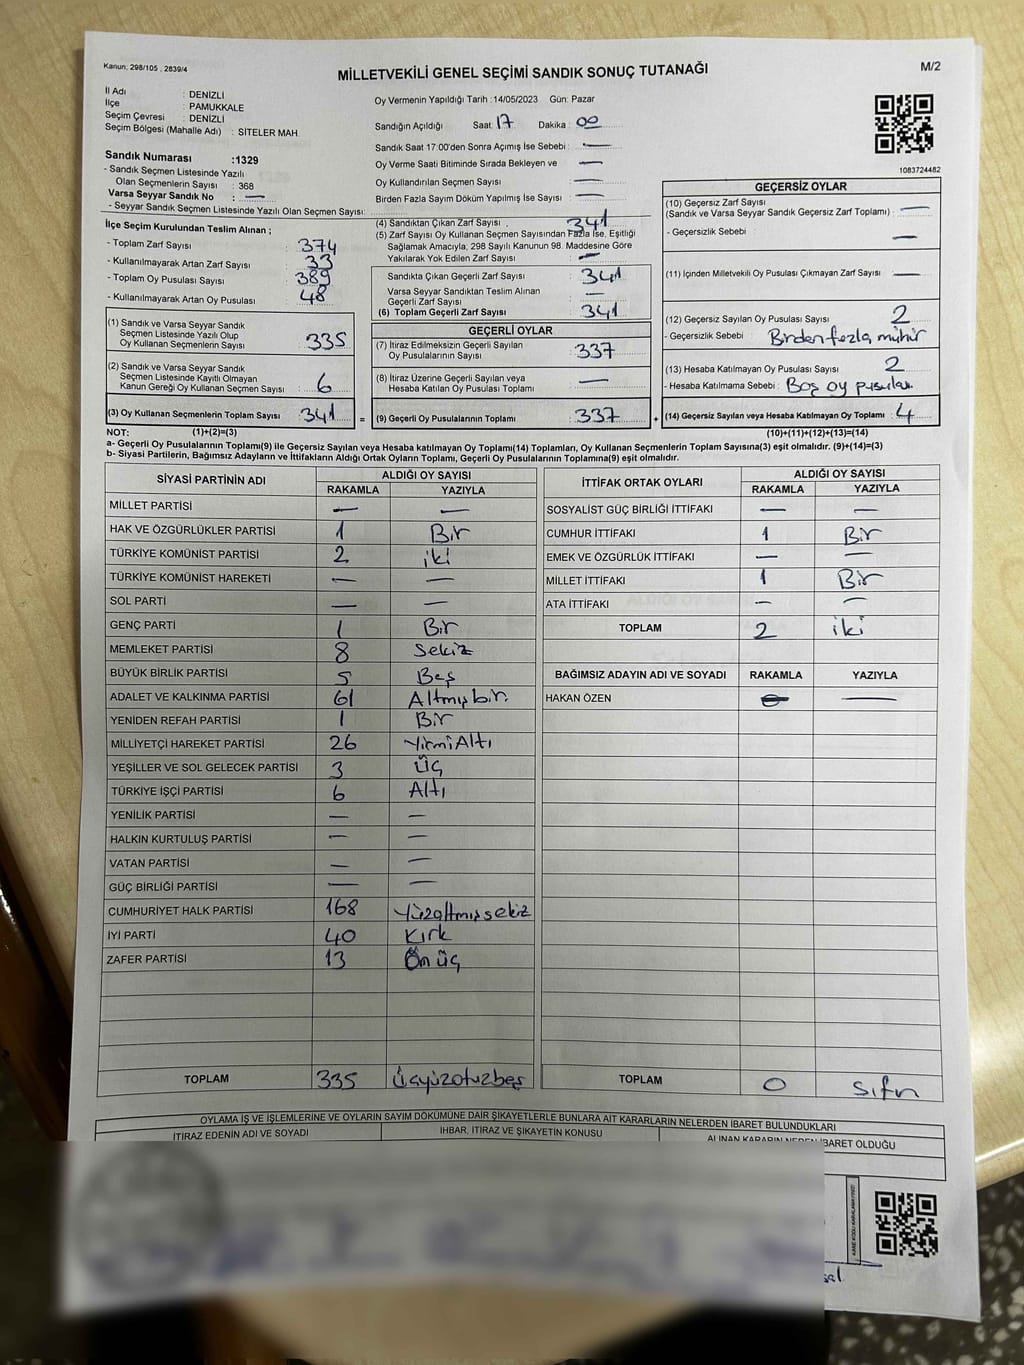 Kanun: 298/105 , 2839/4
MİLLETVEKİLİ GENEL SEÇİMİ SANDIK SONUÇ TUTANAĞI
M/2
İl Adı : DENİZLİ
İlçe : PAMUKKALE
Seçim Çevresi : DENİZLİ
Seçim Bölgesi (Mahalle Adı) : SİTELER MAH.
Sandık Numarası :1329
- Sandık Seçmen Listesinde Yazılı
Olan Seçmenlerin Sayısı : 368
Varsa Seyyar Sandık No : —
- Seyyar Sandık Seçmen Listesinde Yazılı Olan Seçmen Sayısı:
Oy Vermenin Yapıldığı Tarih :14/05/2023 Gün: Pazar
Sandığın Açıldığı Saat 17 Dakika : 00
Sandık Saat 17:00'den Sonra Açımış İse Sebebi : —
Oy Verme Saati Bitiminde Sırada Bekleyen ve —
Oy Kullandırılan Seçmen Sayısı —
Birden Fazla Sayım Döküm Yapılmış İse Sayısı —
1083724482
İlçe Seçim Kurulundan Teslim Alınan ;
- Toplam Zarf Sayısı : 374
- Kullanılmayarak Artan Zarf Sayısı : 33
- Toplam Oy Pusulası Sayısı : 389
- Kullanılmayarak Artan Oy Pusulası : 48
(1) Sandık ve Varsa Seyyar Sandık
Seçmen Listesinde Yazılı Olup
Oy Kullanan Seçmenlerin Sayısı : 335
(2) Sandık ve Varsa Seyyar Sandık
Seçmen Listesinde Kayıtlı Olmayan
Kanun Gereği Oy Kullanan Seçmen Sayısı : 6
(3) Oy Kullanan Seçmenlerin Toplam Sayısı : 341 =
(4) Sandıktan Çıkan Zarf Sayısı : 341
(5) Zarf Sayısı Oy Kullanan Seçmen Sayısından Fazla İse, Eşitliği
Sağlamak Amacıyla, 298 Sayılı Kanunun 98. Maddesine Göre
Yakılarak Yok Edilen Zarf Sayısı : —
Sandıkta Çıkan Geçerli Zarf Sayısı : 341
Varsa Seyyar Sandıktan Teslim Alınan
Geçerli Zarf Sayısı : —
(6) Toplam Geçerli Zarf Sayısı : 341
GEÇERLİ OYLAR
(7) İtiraz Edilmeksizin Geçerli Sayılan
Oy Pusulalarının Sayısı : 337
(8) İtiraz Üzerine Geçerli Sayılan veya
Hesaba Katılan Oy Pusulası Toplamı : —
(9) Geçerli Oy Pusulalarının Toplamı : 337 +
GEÇERSİZ OYLAR
(10) Geçersiz Zarf Sayısı
(Sandık ve Varsa Seyyar Sandık Geçersiz Zarf Toplamı) : —
- Geçersizlik Sebebi : —
(11) İçinden Milletvekili Oy Pusulası Çıkmayan Zarf Sayısı : —
(12) Geçersiz Sayılan Oy Pusulası Sayısı : 2
- Geçersizlik Sebebi : Birden fazla mühür
(13) Hesaba Katılmayan Oy Pusulası Sayısı : 2
- Hesaba Katılmama Sebebi : Boş oy pusulası
(14) Geçersiz Sayılan veya Hesaba Katılmayan Oy Toplamı : 4
NOT: (1)+(2)=(3) (10)+(11)+(12)+(13)=(14)
a- Geçerli Oy Pusulalarının Toplamı(9) ile Geçersiz Sayılan veya Hesaba katılmayan Oy Toplamı(14) Toplamları, Oy Kullanan Seçmenlerin Toplam Sayısına(3) eşit olmalıdır. (9)+(14)=(3)
b- Siyasi Partilerin, Bağımsız Adayların ve İttifakların Aldığı Ortak Oyların Toplamı, Geçerli Oy Pusulalarının Toplamına(9) eşit olmalıdır.
SİYASİ PARTİNİN ADI ALDIĞI OY SAYISI
RAKAMLA YAZIYLA
MİLLET PARTİSİ — —
HAK VE ÖZGÜRLÜKLER PARTİSİ 1 Bir
TÜRKİYE KOMÜNİST PARTİSİ 2 iki
TÜRKİYE KOMÜNİST HAREKETİ — —
SOL PARTİ — —
GENÇ PARTİ 1 Bir
MEMLEKET PARTİSİ 8 Sekiz
BÜYÜK BİRLİK PARTİSİ 5 Beş
ADALET VE KALKINMA PARTİSİ 61 Altmışbir.
YENİDEN REFAH PARTİSİ 1 Bir
MİLLİYETÇİ HAREKET PARTİSİ 26 YirmiAltı
YEŞİLLER VE SOL GELECEK PARTİSİ 3 Üç
TÜRKİYE İŞÇİ PARTİSİ 6 Altı
YENİLİK PARTİSİ — —
HALKIN KURTULUŞ PARTİSİ — —
VATAN PARTİSİ — —
GÜÇ BİRLİĞİ PARTİSİ — —
CUMHURİYET HALK PARTİSİ 168 Yüzaltmışsekiz
İYİ PARTİ 40 Kırk
ZAFER PARTİSİ 13 Onüç
TOPLAM 335 Üçyüzotuzbeş
İTTİFAK ORTAK OYLARI ALDIĞI OY SAYISI
RAKAMLA YAZIYLA
SOSYALİST GÜÇ BİRLİĞİ İTTİFAKI — —
CUMHUR İTTİFAKI 1 Bir
EMEK VE ÖZGÜRLÜK İTTİFAKI — —
MİLLET İTTİFAKI 1 Bir
ATA İTTİFAKI — —
TOPLAM 2 iki
BAĞIMSIZ ADAYIN ADI VE SOYADI RAKAMLA YAZIYLA
HAKAN ÖZEN 0 —
TOPLAM 0 Sıfır
OYLAMA İŞ VE İŞLEMLERİNE VE OYLARIN SAYIM DÖKÜMÜNE DAİR ŞİKAYETLERLE BUNLARA AİT KARARLARIN NELERDEN İBARET BULUNDUKLARI
İTİRAZ EDENİN ADI VE SOYADI İHBAR, İTİRAZ VE ŞİKAYETİN KONUSU ALINAN KARARIN NEDEN İBARET OLDUĞU